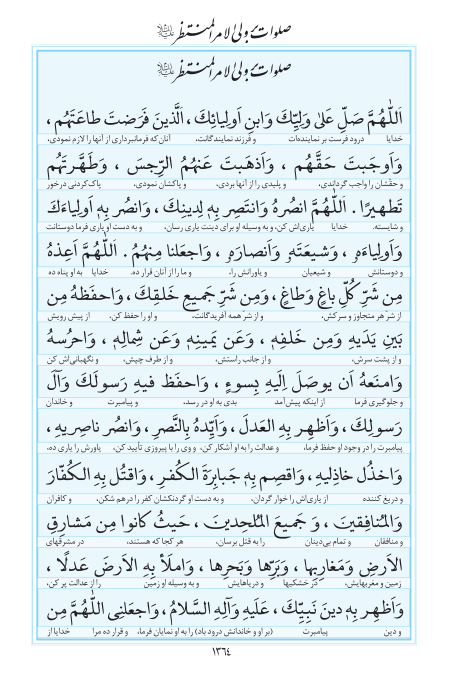 صلوات بر ولی الامر المنتظر علیه‌السلام
صلوات بر ولی الامر المنتظر علیه‌السلام
اَللّٰهُمَّ صَلِّ عَلىٰ وَلِيِّكَ وَابنِ اَولِيائِكَ ، اَلَّذينَ فَرَضتَ طاعَتَهُم ،
خدایا درود فرست بر نماینده‌ات و فرزند نمایندگانت، آنان که فرمانبرداری از آنها را لازم نمودی،
وَاَوجَبتَ حَقَّهُم ، وَاَذهَبتَ عَنهُمُ الرِّجسَ ، وَطَهَّرتَهُم
و حقّشان را واجب گرداندی، و پلیدی را از آنها بردی، و پاکشان نمودی، پاک‌کردنی درخور
تَطهيرًا . اَللّٰهُمَّ انصُرهُ وَانتَصِر بِهٖ لِدينِكَ ، وَانصُر بِهٖ اَولِياءَكَ
و شایسته. خدایا یاری‌اش کن، و به وسیله او برای دینت یاری رسان، و به دست او یاری فرما دوستانت
وَاَولِياءَهٗ ، وَشيعَتَهٗ وَاَنصارَهٗ ، وَاجعَلنا مِنهُم . اَللّٰهُمَّ اَعِذهُ
و دوستانش و شیعیان و یاورانش را، و ما را از آنان قرار ده. خدایا به او پناه ده
مِن شَرِّ كُلِّ باغٍ وَطاغٍ ، وَمِن شَرِّ جَميعِ خَلقِكَ ، وَاحفَظهُ مِن
از شرّ هر متجاوز و سرکش، و از شرّ همه آفریدگانت، و او را حفظ کن، از پیش رویش
بَينِ يَدَيهِ وَمِن خَلفِهٖ ، وَعَن يَمينِهٖ وَعَن شِمالِهٖ ، وَاحرُسهُ
و از پشت سرش، و از جانب راستش، و از طرف چپش، و نگهبانی‌اش کن
وَامنَعهُ اَن يوصَلَ اِلَيهِ بِسوءٍ ، وَاحفَظ فيهِ رَسولَكَ وَآلَ
و جلوگیری فرما از اینکه پیش‌آمد بدی به او در رسد، و پیامبرت و خاندان
رَسولِكَ ، وَاَظهِر بِهِ العَدلَ ، وَاَيِّدهُ بِالنَّصرِ ، وَانصُر ناصِريهِ ،
پیامبرت را در وجود او حفظ فرما، و عدالت را به او آشکار کن، و وی را با پیروزی تأیید کن، یاورش را یاری ده،
وَاخذُل خاذِليهِ ، وَاقصِم بِهٖ جَبابِرَةَ الكُفرِ ، وَاقتُل بِهِ الكُفّارَ
و دریغ کننده از یاری‌اش را خوار گردان، و به دست او گردنکشان کفر را درهم شکن، و کافران
وَالمُنافِقينَ ، وَ جَميعَ المُلحِدينَ ، حَيثُ كانوا مِن مَشارِقِ
و منافقان و تمام بی‌دینان را به قتل برسان، هر کجا که هستند، در مشرقهای
الاَرضِ وَمَغارِبِها ، وَبَرِّها وَبَحرِها ، وَاملَأ بِهِ الاَرضَ عَدلًا ،
زمین و مغربهایش، در خشکیها و دریاهایش و به وسیله او زمین را از عدالت پر کن،
وَاَظهِر بِهٖ دينَ نَبِيِّكَ ، عَلَيهِ وَآلِهِ السَّلامُ ، وَاجعَلنِى اللّٰهُمَّ مِن
و دین پیامبرت (بر او و خاندانش درود باد) را به او نمایان فرما، و قرار ده مرا خدایا از
١٣٦٤